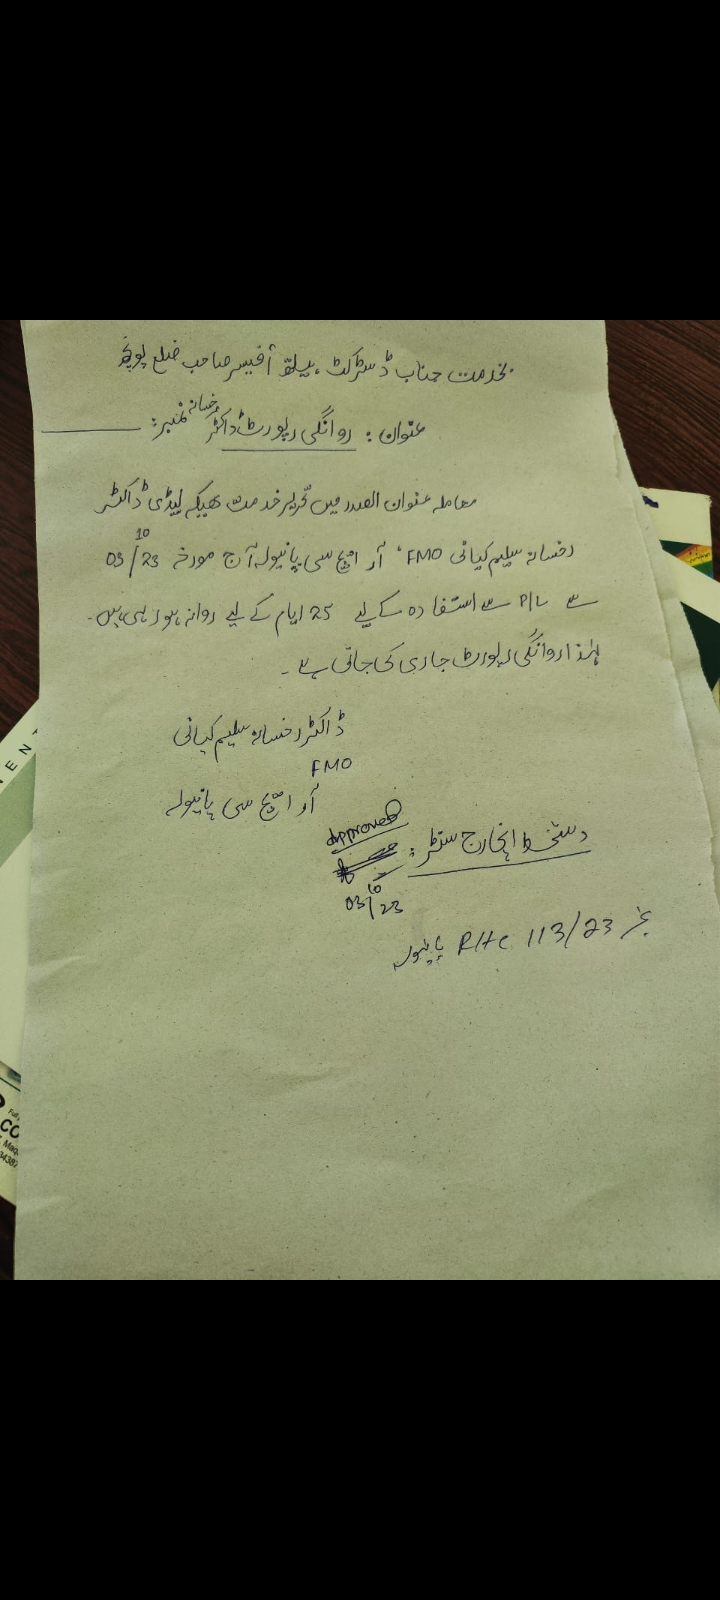 بخدمت جناب ڈسٹرکٹ ہیلتھ آفیسر صاحب ضلع پونچھ
عنوان: روانگی رپورٹ ڈاکٹر رخسانہ نمبر:
معاملہ عنوان الصدر میں تحریر خدمت ہیکہ لیڈی ڈاکٹر
رخسانہ سلیم کیانی FMO، آر ایچ سی پانیولہ آج مورخہ 03/10/23
سے P/L سے استفادہ کے لیے 25 ایام کے لیے روانہ ہو رہی ہیں۔
لہٰذا روانگی رپورٹ جاری کی جاتی ہے۔
ڈاکٹر رخسانہ سلیم کیانی
FMO
آر ایچ سی پانیولہ
دستخط انچارج سنٹر:
Approved
03/10/23
نمبر 113/23 RHC پانیولہ
ENT
CO